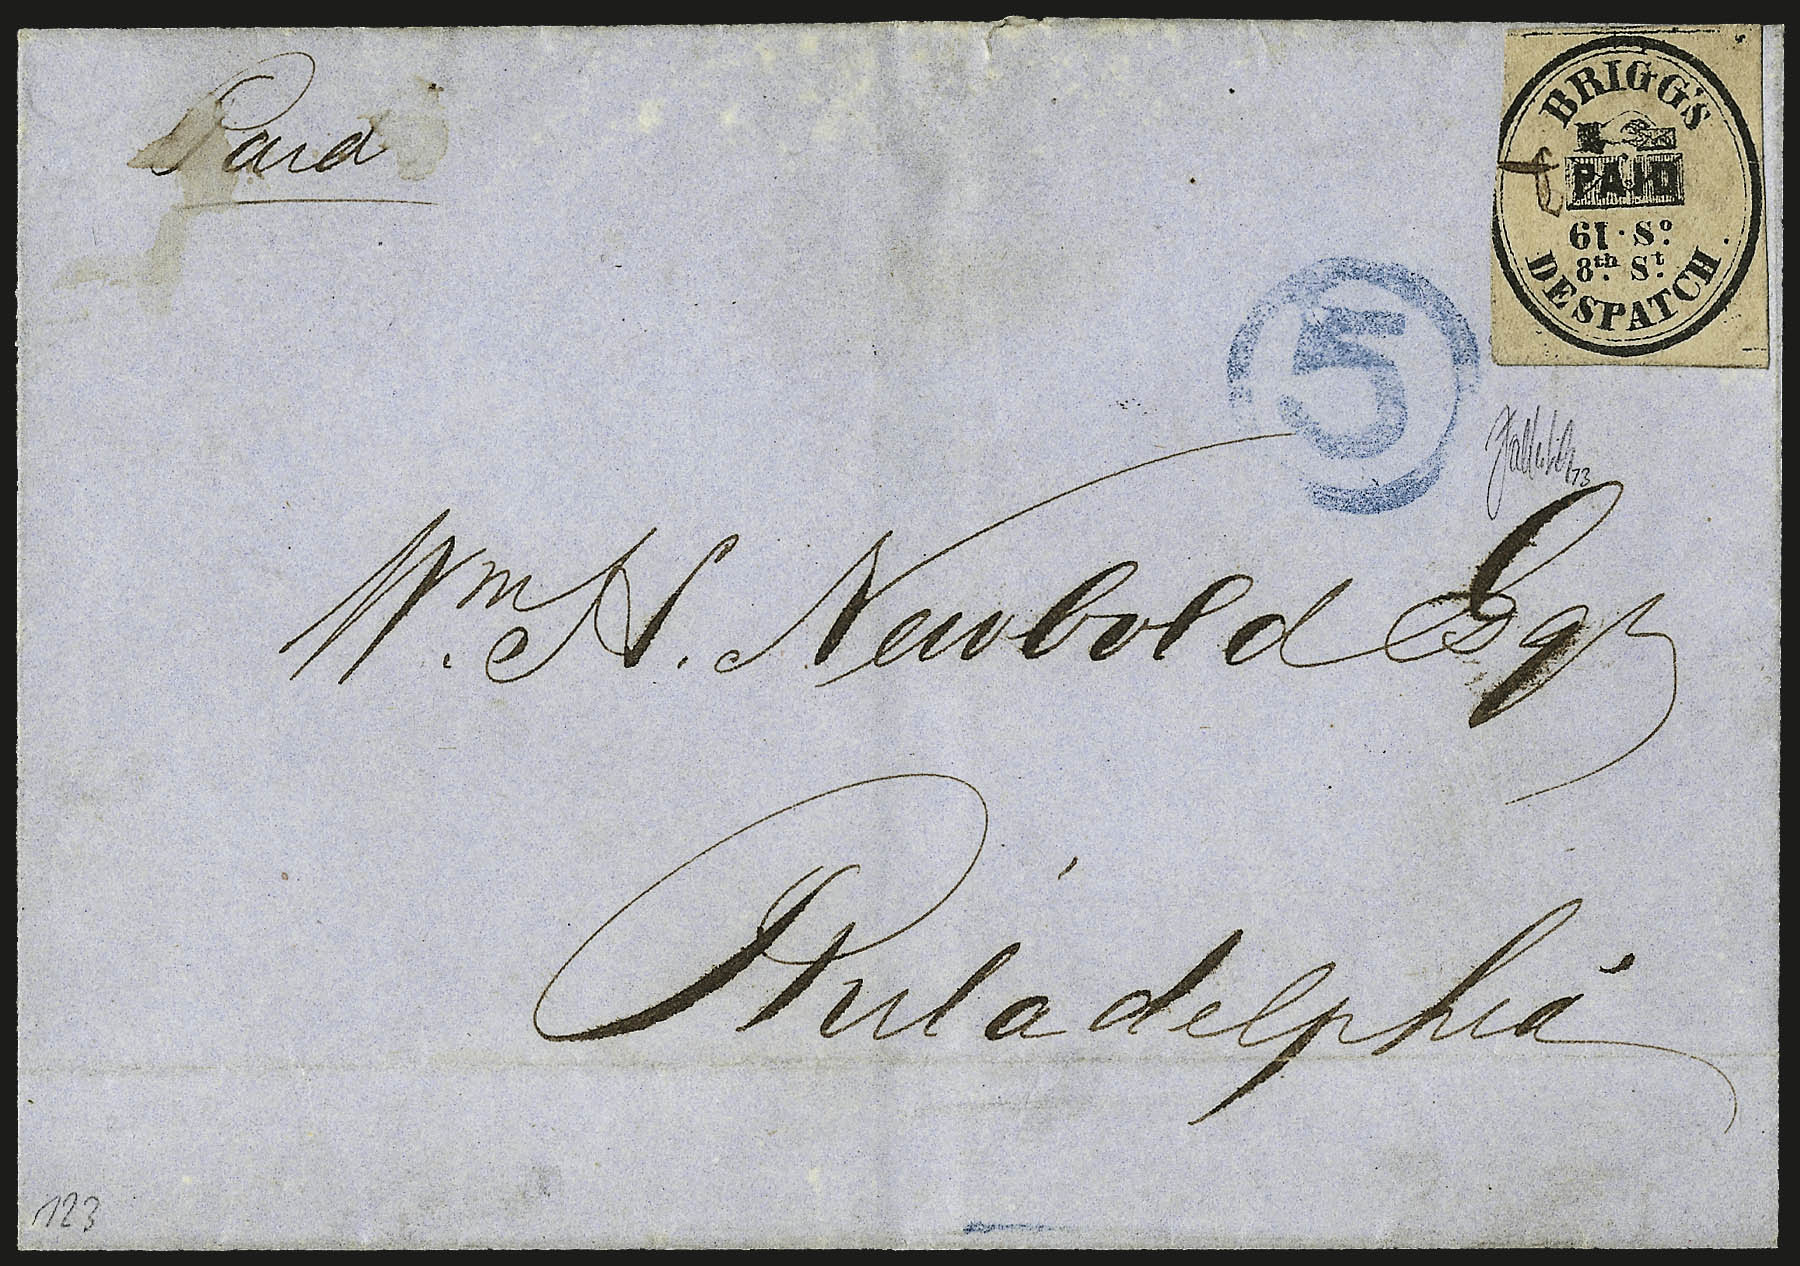 Paid
BRIGG'S
PAID
61 · Sº.
8th. St.
DESPATCH.
5
Wm. H. Newbold Esqr
Philadelphia
123